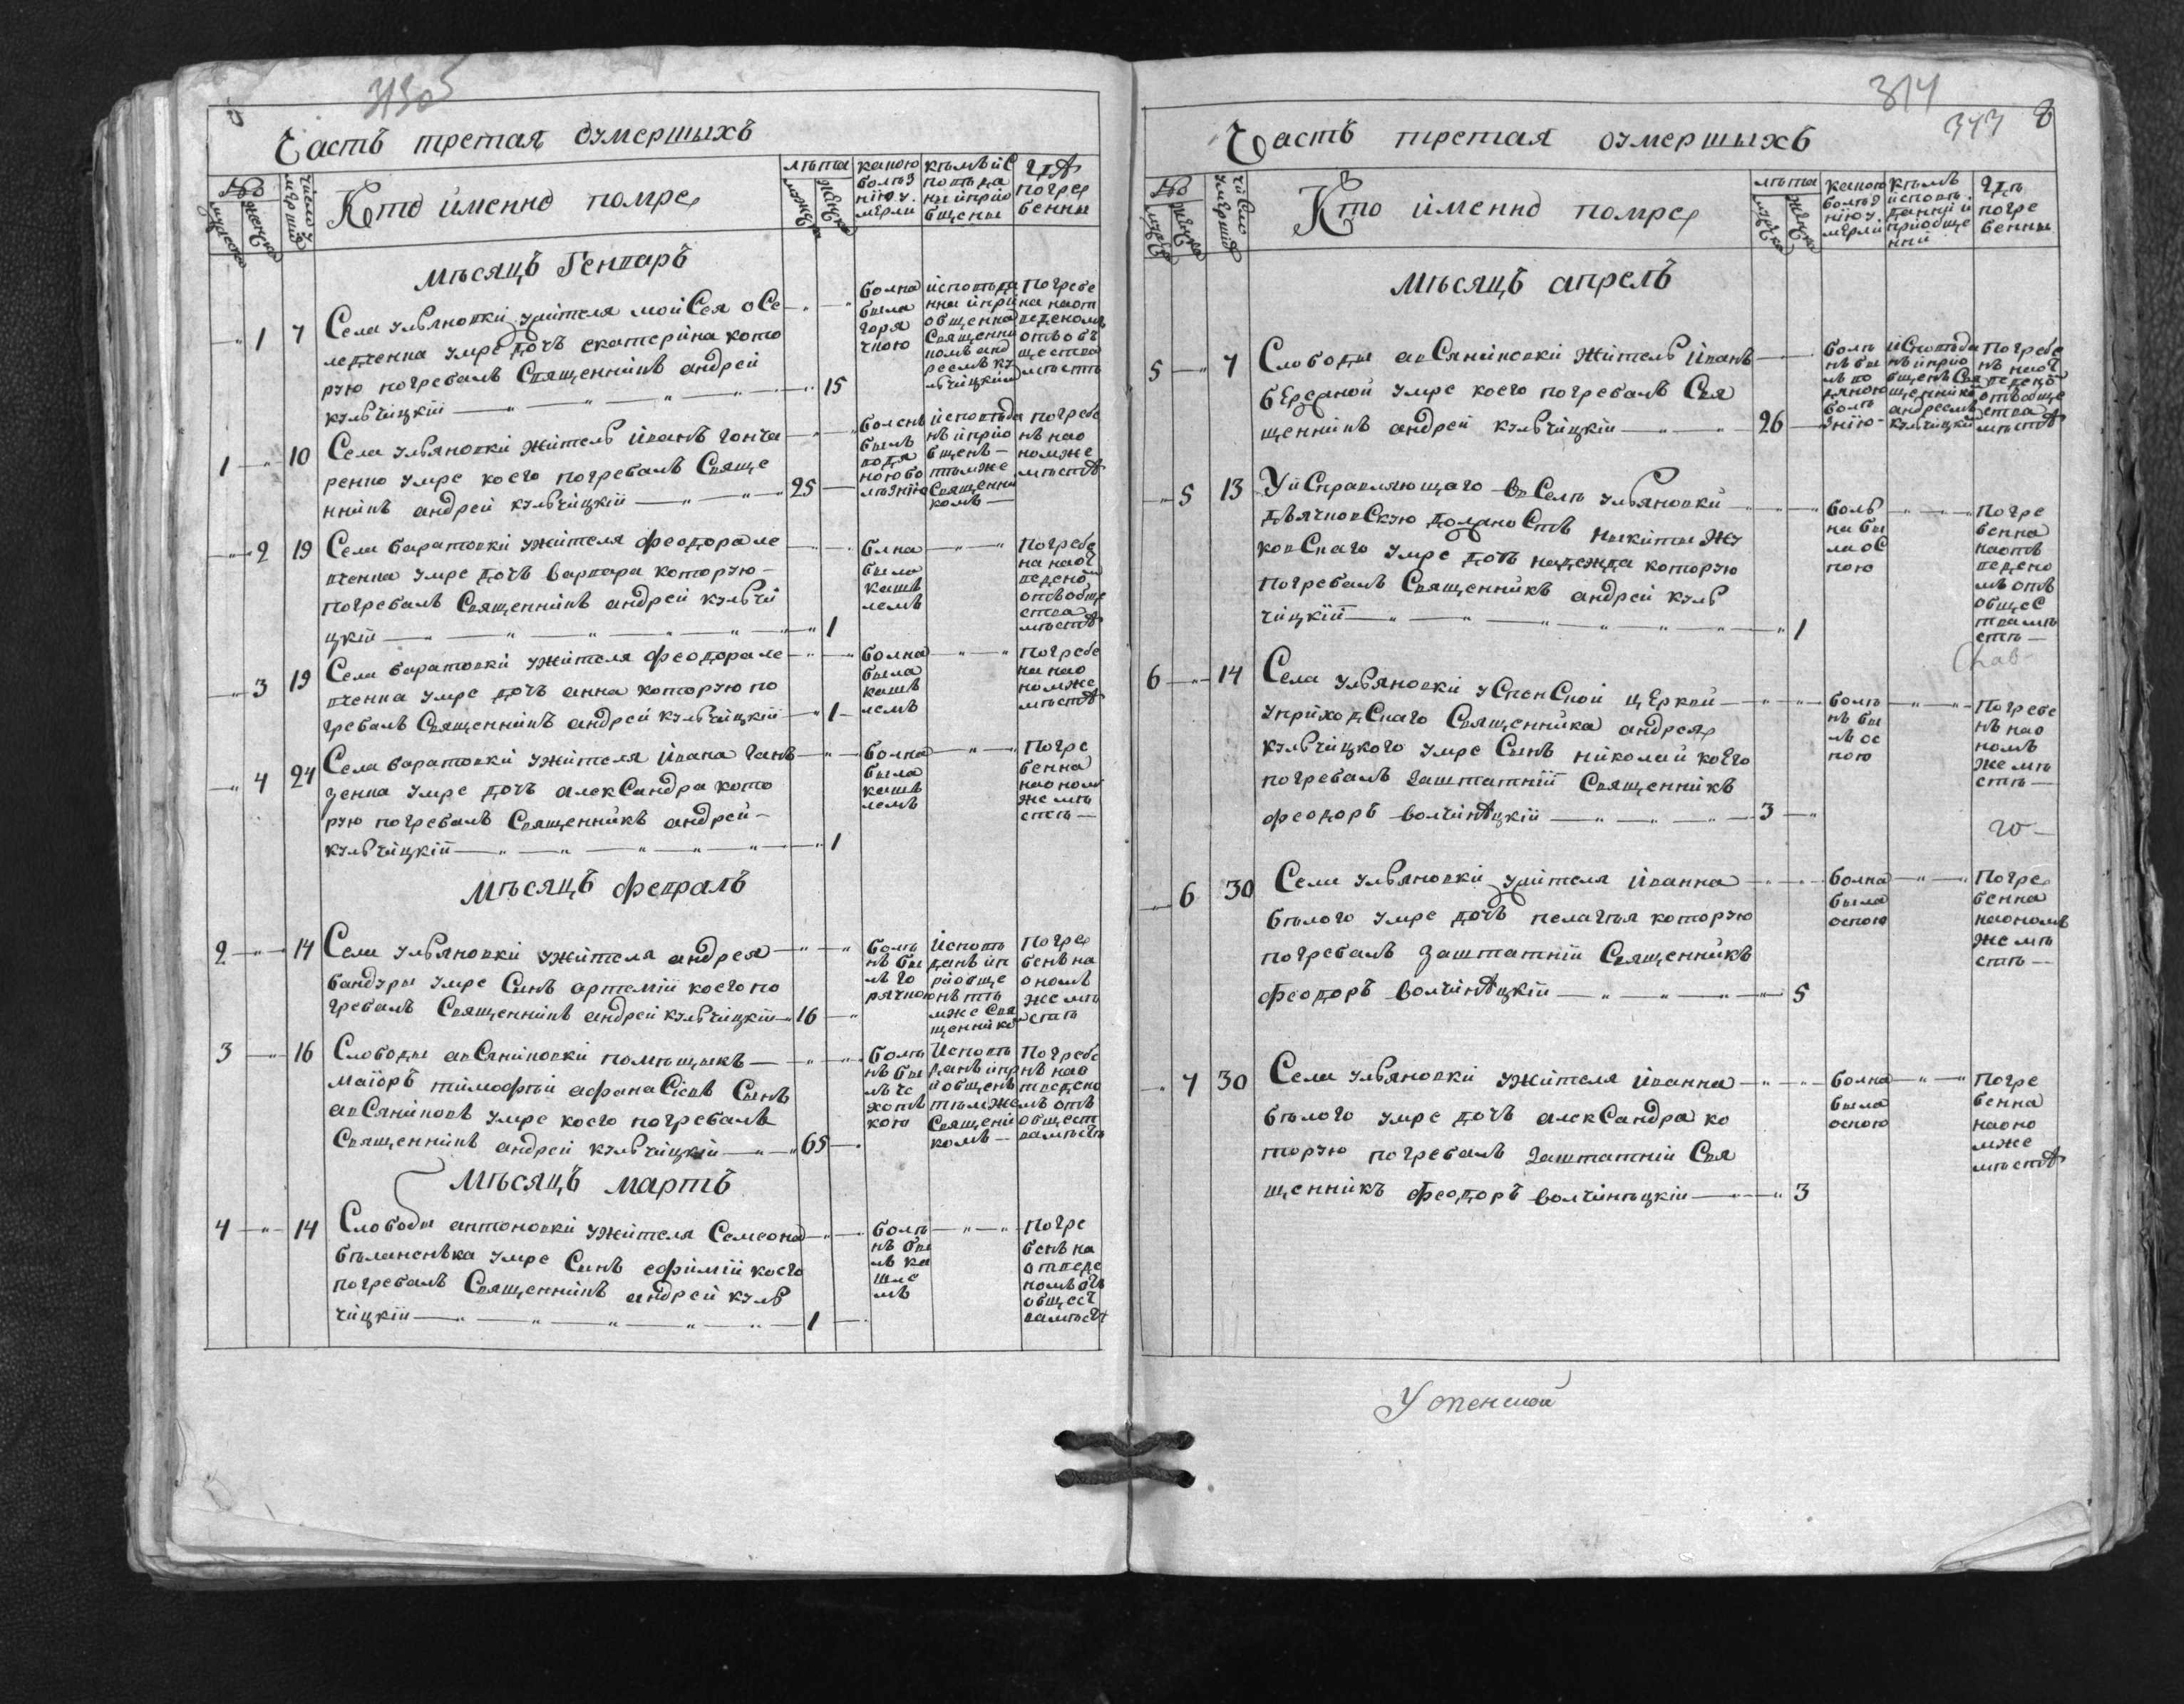 Часть третая оумершыхъ
Кто именно помре
лѣта
каною болѣзнію умерли
кѣмъ исповѣданы и приобщены
гдѣ погребенны
мѣсяцъ Генваръ
1 7 Села Ульяновки жителя мойСея оСе
ледченка умре дочь екатерина кото
рую погребалъ Священникъ андрей
кульчицкій 15
болна была горячкою
исповѣданна и приобщенна Священникомъ андреемъ кульчицкимъ
Погребена на отведеномъ отъ общества мѣстѣ
1 10 Села Ульяновки житель Иванъ гонча
ренко умре коего погребалъ Свяще
нникъ андрей кульчицкій 25
боленъ былъ водяною болѣзнію
исповѣданъ и приобщенъ тѣмже Священникомъ
погребенъ на ономже мѣстѣ
2 19 Села баратовки жителя феодора ле
вченка умре дочь варвара которую
погребалъ Священникъ андрей кульчи
цкій 1
блна была кашлемъ
Погребена на отведеномъ отъ общества мѣстѣ
3 19 Села баратовки жителя феодора ле
вченка умре дочь анна которую по
гребалъ Священникъ андрей кульчицкій 1
болна была кашлемъ
погребена на ономже мѣстѣ
4 24 Села баратовки жителя Ивана ганъ
зенка умре дочь алекСандра кото
рую погребалъ Священникъ андрей
кульчицкій 1
болна была кашлемъ
Погребенна на ономже мѣстѣ
Мѣсяцъ февралъ
2 14 Села Ульяновки жителя андрея
бандуры умре Сынъ артемій коего по
гребалъ Священникъ андрей кульчицкій 16
болѣнъ былъ горячкою
Исповѣданъ и приобщенъ тѣмже Священнико
Погребенъ на ономъже мѣстѣ
3 16 Слободы авСяниковки помѣщыкъ
маіоръ тимофѣй афанаСіевъ Сынъ
авСяниковъ умре коего погребалъ
Священникъ андрей кульчицкій 65
болѣнъ былъ чехоткою
Исповѣданъ и приобщенъ тѣмже Священикомъ
Погребенъ на отведеномъ отъ общества мѣстѣ
Мѣсяцъ мартъ
4 14 Слободы антоновки жителя Семеона
бѣланенъка умре Сынъ ефимій коего
погребалъ Священникъ андрей куль
чицкій 1
болѣнъ былъ кашлемъ
Погребенъ на отведеномъ отъ общества мѣстѣ
314
343 8
Часть третая оумершыхъ
Кто именно помре
лѣта
каною болѣзнію умерли
кѣмъ исповѣданнй и приобщенный
гдѣ погребенны
мѣсяцъ апрелъ
5 7 Слободы авСяниковки житель Иванъ
бЕредной умре коего погребалъ Свя
щенникъ андрей кульчицкій 26
болѣнъ былъ водяною болѣзнію
иСповѣданъ и приобщенъ Священнико андреемъ кульчицки
Погребенъ на отведено отъ общества мѣстѣ
5 13 УиСправляющаго въ Селѣ Ульяновки
дьячковСкую должноСть никиты жу
ковСкаго умре дочь надежда которую
погребалъ Священникъ андрей куль
чицкій 1
больна была оСпою
Погребенна на отведеномъ отъ общеСтва мѣстѣ
6 14 Села Ульяновки уСпенСкой цЕркви
уприходСкаго Священника андрея
кульчицкого умре Сынъ николай коего
погребалъ Заштатній Священникъ
феодоръ волчинѣцкій 3
болѣнъ былъ оспою
Погребенъ на ономъже мѣстѣ
6 30 Села Ульяновки жителя Иванна
бѣлого умре дочь пелагѣя которую
погребалъ Заштатній Священникъ
феодоръ волчинѣцкій 5
болна была оспою
Погребенна на ономъже мѣстѣ
7 30 Села Ульяновки жителя Иванна
бѣлого умре дочь алекСандра ко
торую погребалъ Заштатній Свя
щенникъ феодоръ волчинѣцкій 3
болна была оспою
Погребенна на ономже мѣстѣ
Успенской